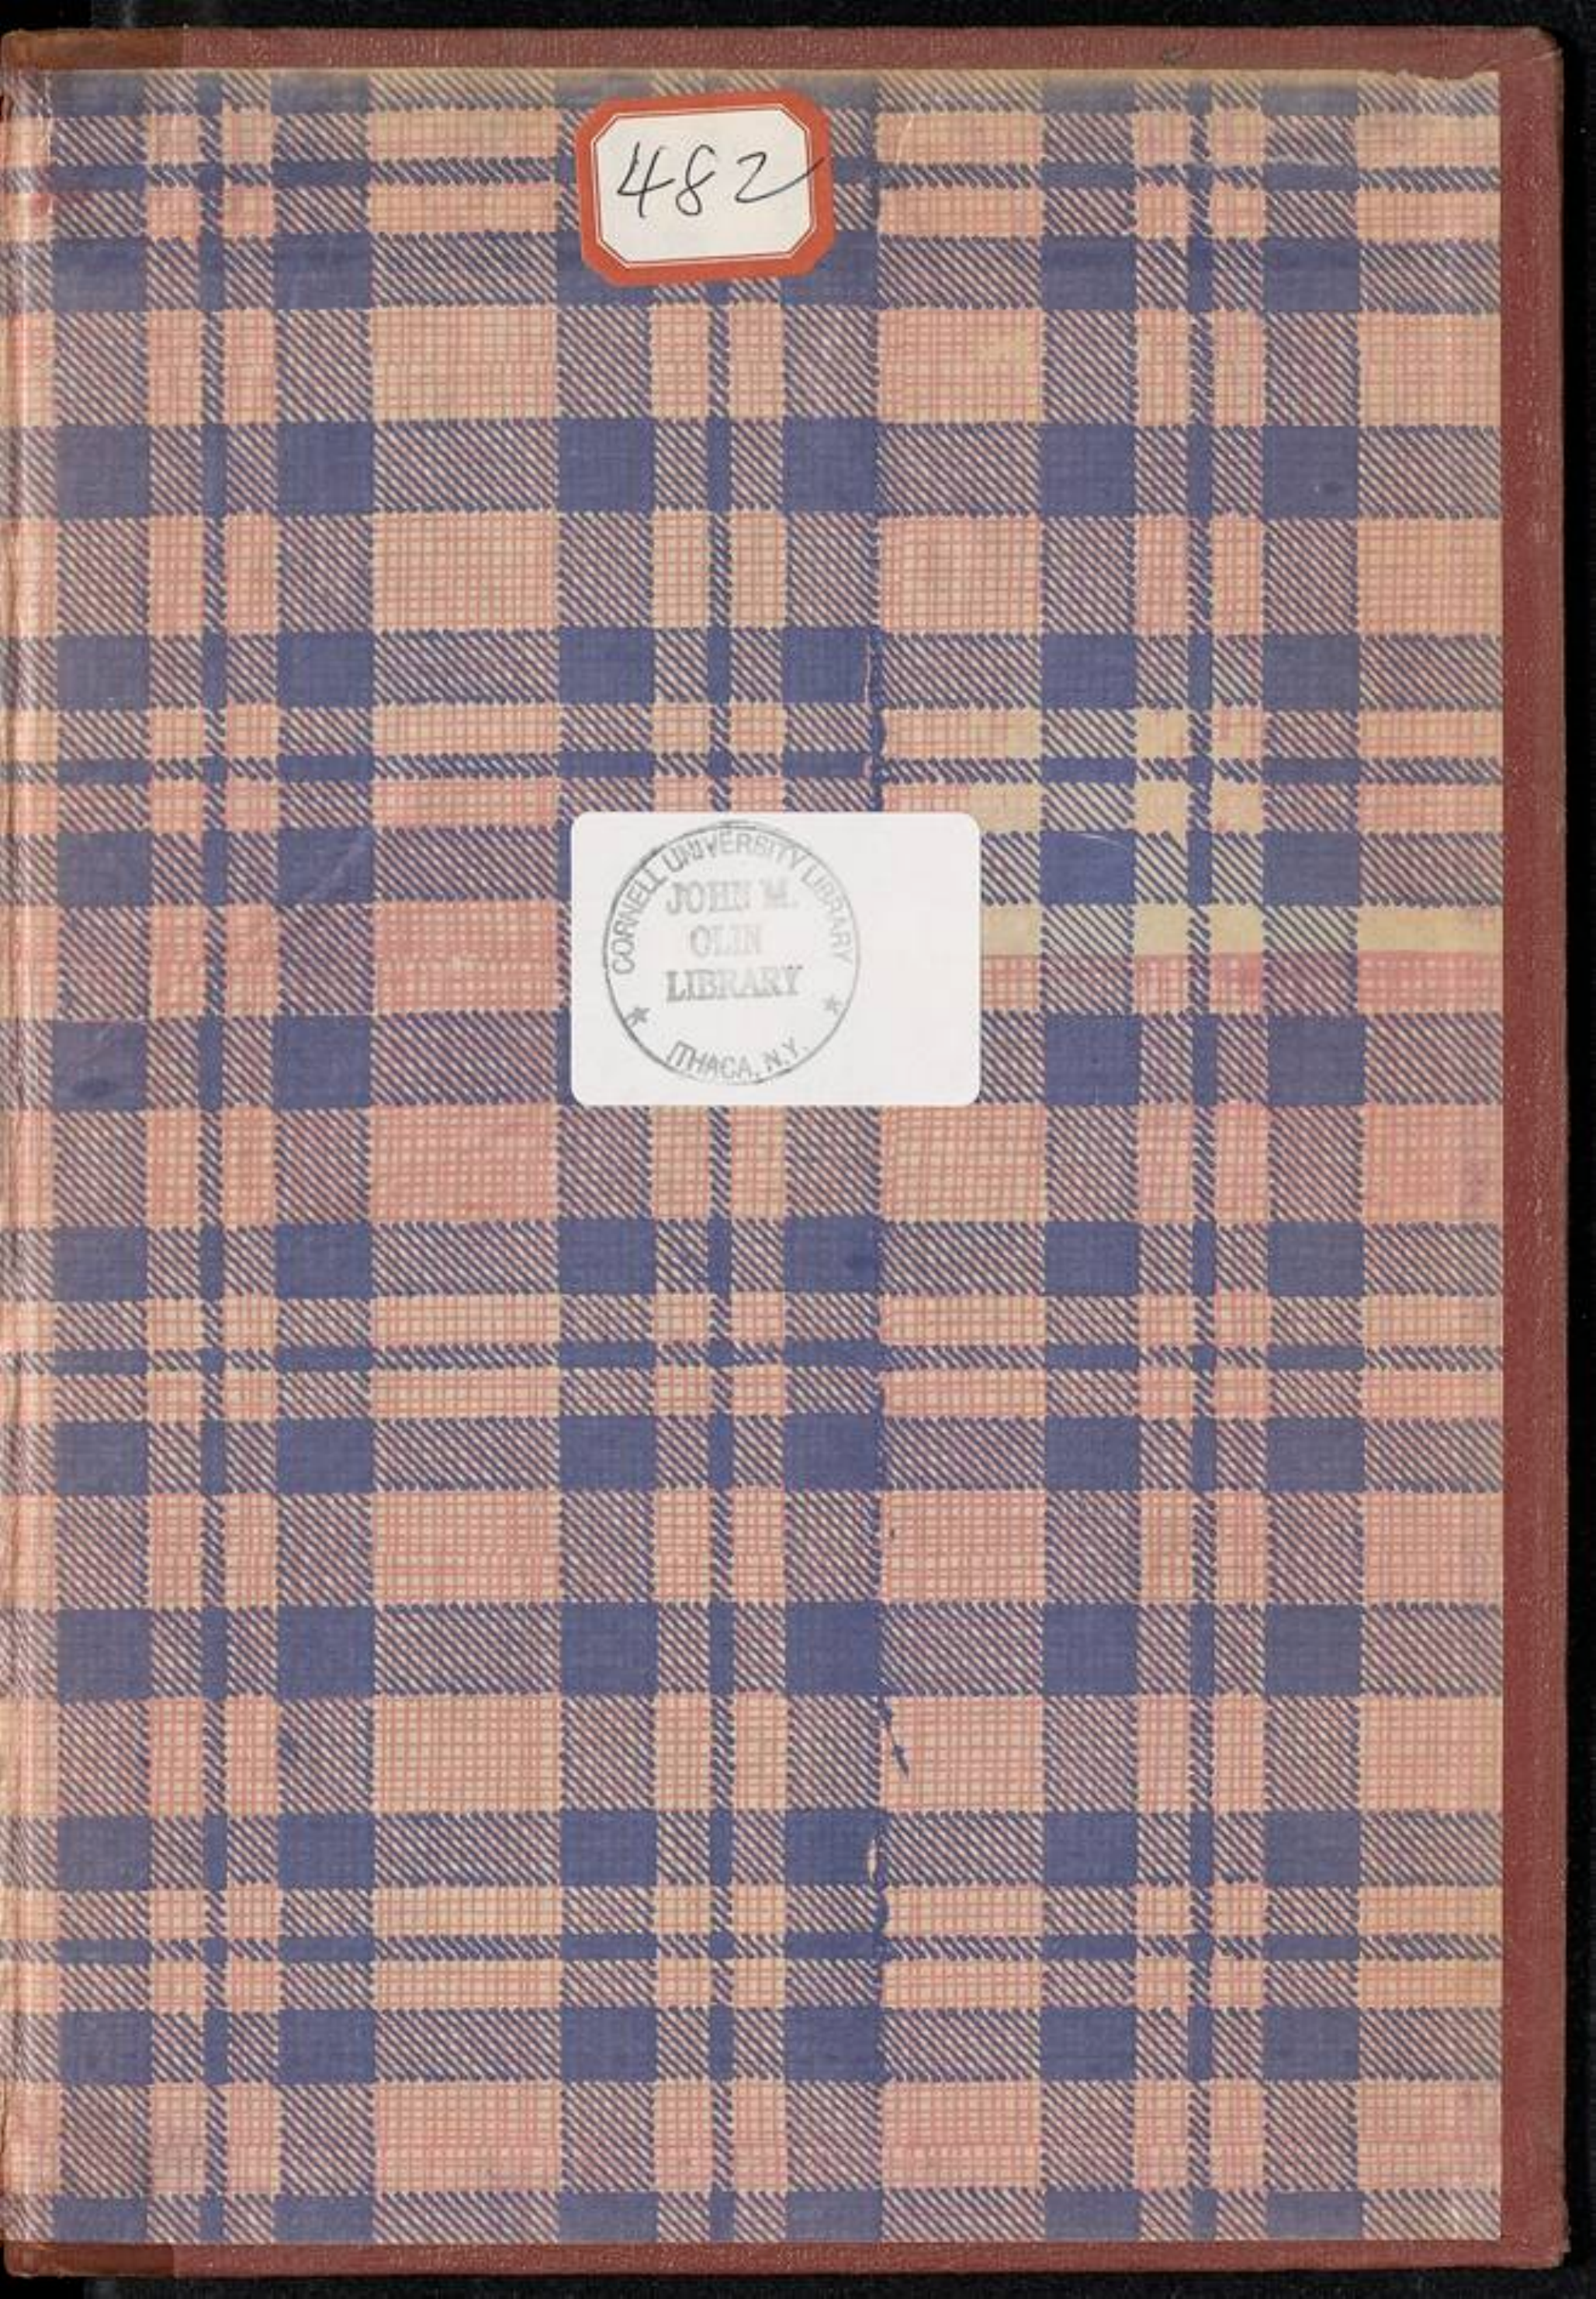 482
CORNELL UNIVERSITY LIBRARY
JOHN M.
OLIN
LIBRARY
ITHACA, N.Y.